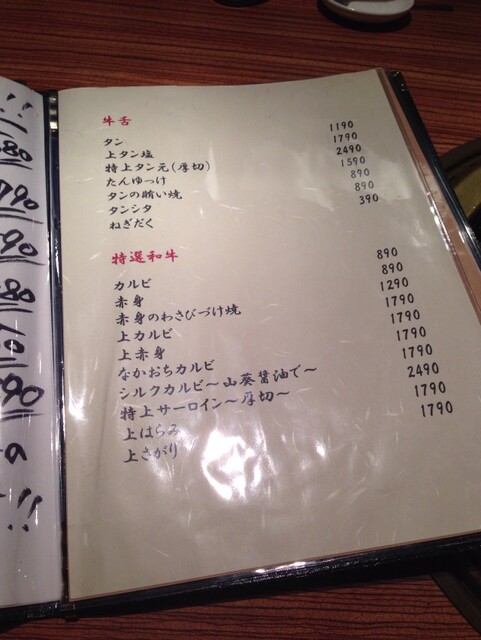 牛舌
タン 1190
上タン塩 1790
特上タン元(厚切) 2490
たんゆっけ 1590
タンの賄い焼 890
タンシタ 890
ねぎだく 390
特選和牛
カルビ 890
赤身 890
赤身のわさびづけ焼 1290
上カルビ 1790
上赤身 1790
なかおちカルビ 1790
シルクカルビ〜山葵醤油で〜 1790
特上サーロイン〜厚切〜 2490
上はらみ 1790
上さがり 1790